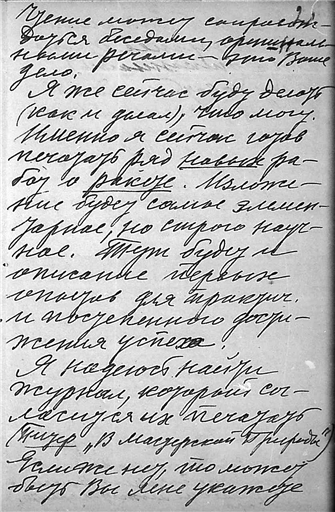 Чтение может сопровож-
даться беседами, оригиналь-
ными речами — это Ваше
дело.
Я же сейчас буду делать
(как и делал), что могу.
Именно я сейчас готов
печатать ряд новых ра-
бот о ракете. Изложе-
ние будет самое элемен-
тарное, но строго науч-
ное. Тут будет и
описание первых
опытов для практич.
и постепенного дости-
жения успеха.
Я надеюсь найти
журнал, который сог-
ласится их печатать
(Питер „В Мастерской Природы")
Если же нет, то может
быть Вы мне укажете